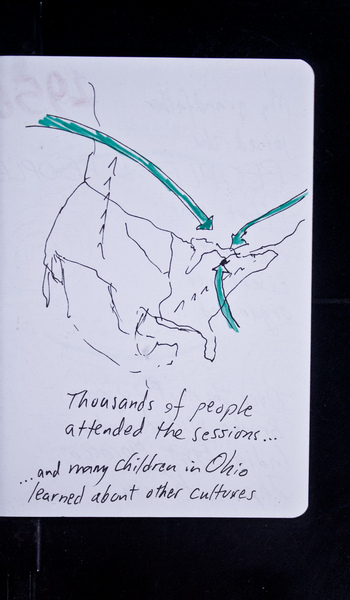 Thousands of people
attended the sessions...
...and many children in Ohio
learned about other cultures